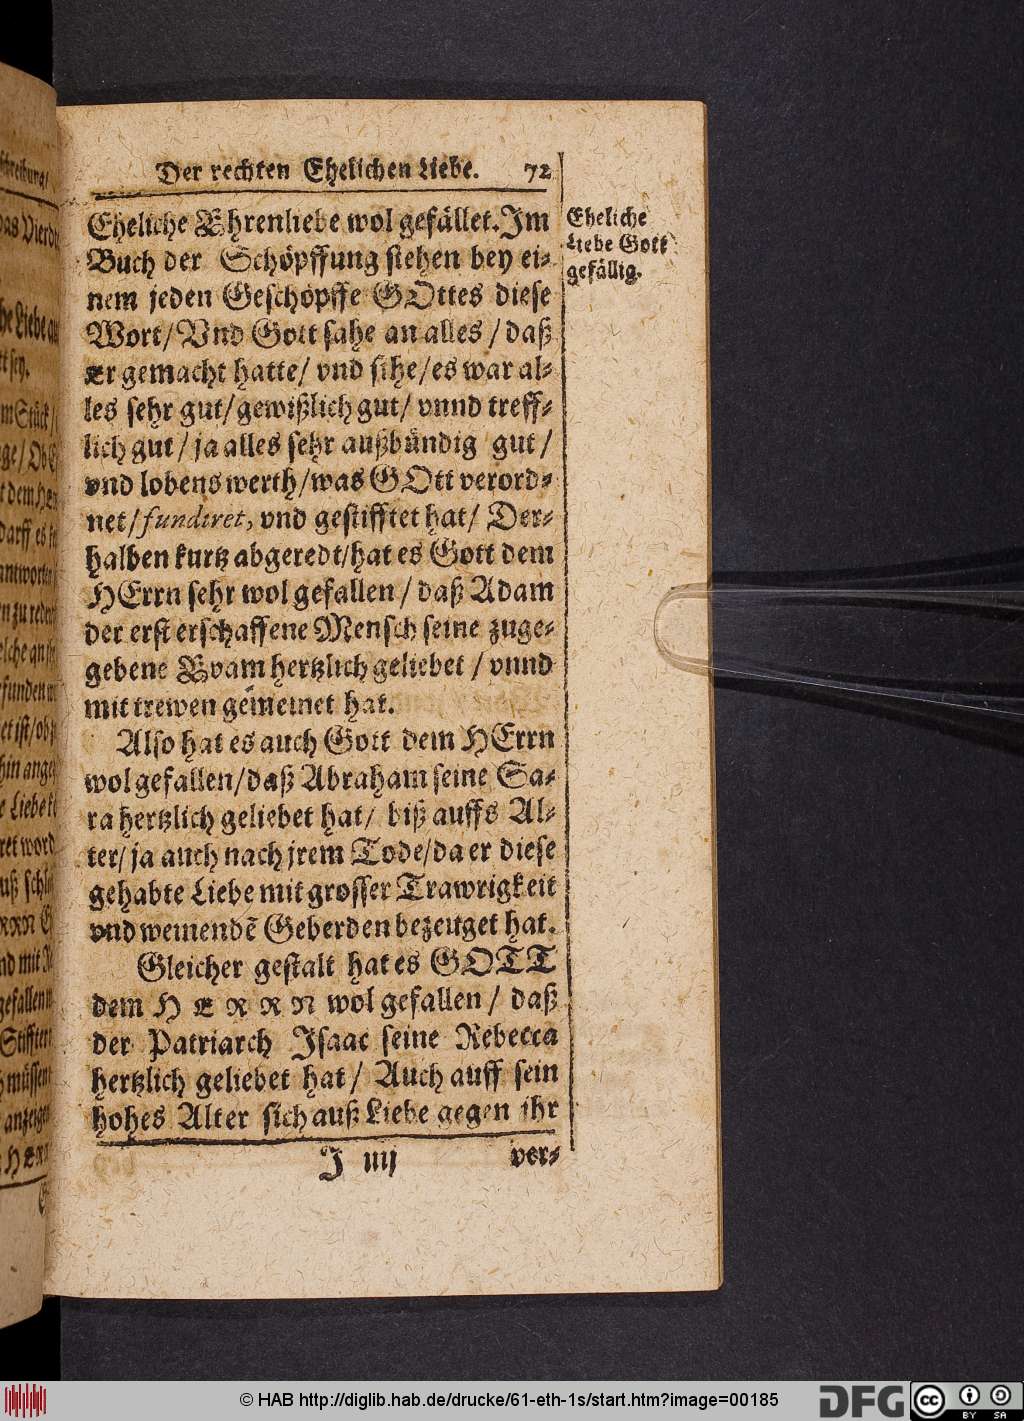 Der rechten Ehelichen Liebe. 72
Eheliche Ehrenliebe wol gefället. Im
Buch der Schöpffung stehen bey ei-
nem jeden Geschöpffe GOttes diese
Wort/ Vnd Gott sahe an alles / daß
Er gemacht hatte/ vnd sihe/ es war al-
les sehr gut/ gewißlich gut/ vnnd treff-
lich gut / ja alles sehr außbündig gut /
vnd lobens werth/ was GOtt verord-
net/ fundiret, vnd gestifftet hat/ Der-
halben kurtz abgeredt/ hat es Gott dem
HErrn sehr wol gefallen / daß Adam
der erst erschaffene Mensch seine zuge-
gebene Evam hertzlich geliebet / vnnd
mit trewen gemeinet hat.
Also hat es auch Gott dem HErrn
wol gefallen/ daß Abraham seine Sa-
ra hertzlich geliebet hat/ biß auffs Al-
ter/ ja auch nach jrem Tode/ da er diese
gehabte Liebe mit grosser Trawrigkeit
vnd weinendẽ Geberden bezeuget hat.
Gleicher gestalt hat es GOTT
dem HERRN wol gefallen / daß
der Patriarch Isaac seine Rebecca
hertzlich geliebet hat/ Auch auff sein
hohes Alter sich auß Liebe gegen ihr
J iiij ver-
Eheliche
Liebe Gott
gefällig.
© HAB http://diglib.hab.de/drucke/61-eth-1s/start.htm?image=00185
DFG
cc BY SA